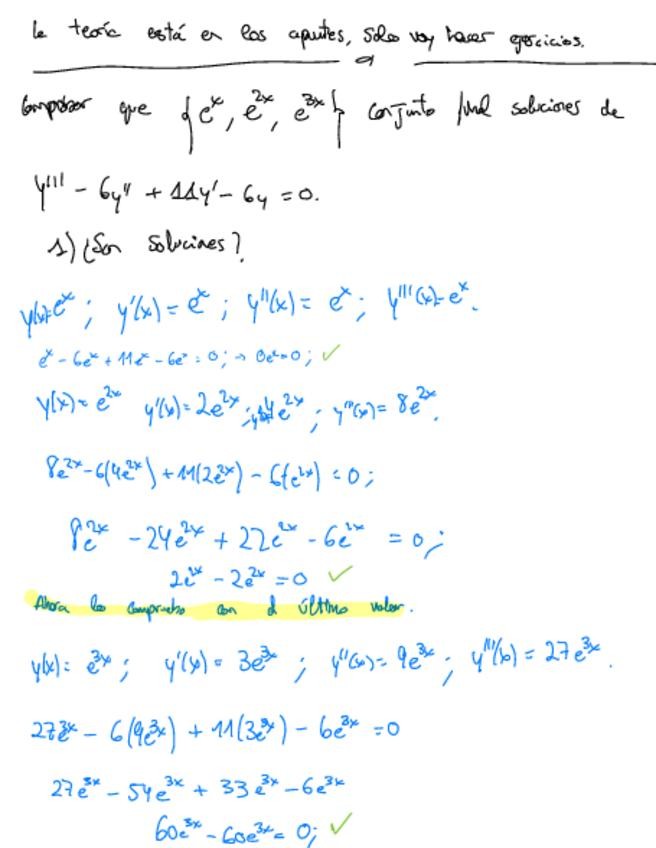 la teoría está en los apuntes, sólo voy hacer ejercicios.
Comprobar que {e^x, e^{2x}, e^{3x}} conjunto fund soluciones de
y''' - 6y'' + 11y' - 6y = 0.
1) ¿Son soluciones?
y(x)=e^x ; y'(x) = e^x ; y''(x) = e^x ; y'''(x)=e^x.
e^x - 6e^x + 11e^x - 6e^x = 0; → 0e^x=0; ✓
y(x) = e^{2x} y'(x) = 2e^{2x} ; y''(x)=4e^{2x} ; y'''(x) = 8e^{2x}.
8e^{2x} - 6(4e^{2x}) + 11(2e^{2x}) - 6(e^{2x}) = 0;
8e^{2x} - 24e^{2x} + 22e^{2x} - 6e^{2x} = 0;
2e^{2x} - 2e^{2x} = 0 ✓
Ahora lo compruebo con el último valor.
y(x) = e^{3x} ; y'(x) = 3e^{3x} ; y''(x) = 9e^{3x} ; y'''(x) = 27e^{3x}.
27e^{3x} - 6(9e^{3x}) + 11(3e^{3x}) - 6e^{3x} = 0
27e^{3x} - 54e^{3x} + 33e^{3x} - 6e^{3x}
60e^{3x} - 60e^{3x} = 0; ✓